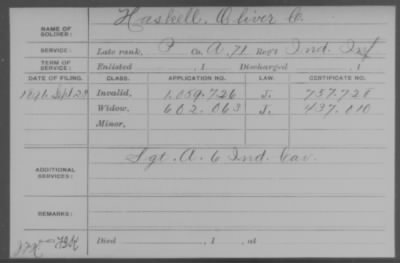 NAME OF SOLDIER: Haskell, Oliver C.
SERVICE: Late rank, P Co. A, 71 Reg't Ind. Inf
TERM OF SERVICE: Enlisted , 1 Discharged , 1
DATE OF FILING. CLASS. APPLICATION NO. LAW. CERTIFICATE NO.
Sept 29 Invalid, 1.059.726 J. 757.728
Widow, 602.063 J. 437.010
Minor,
ADDITIONAL SERVICES: Sgt. A. 6 Ind. Cav.
REMARKS:
Died , 1 , at